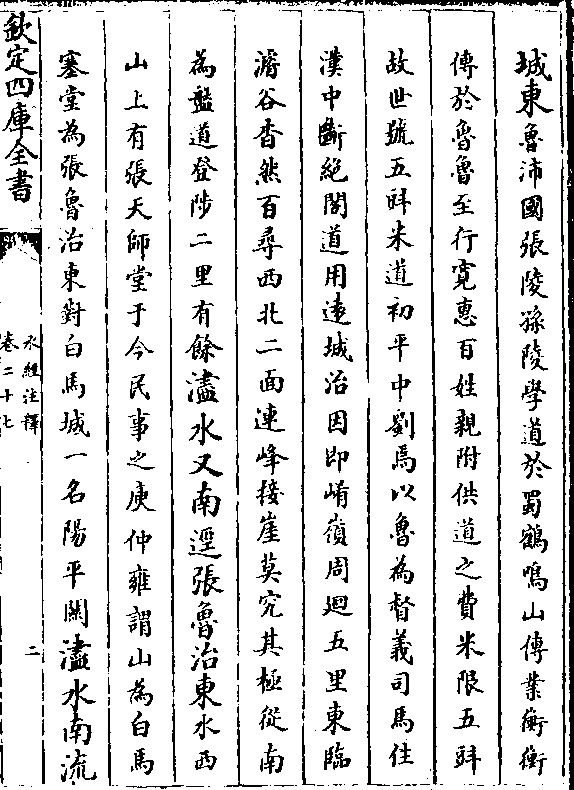 城東魯沛國張陵孫陵學道於蜀鶴鳴山傳業衡衡
傳於魯魯至行寛惠百姓親附供道之費米限五斗
故世號五斗米道初平中劉焉以魯為督義司馬住
漢中斷絶閣道用逺城治因即崤嶺周迴五里東臨
濬谷杳然百尋西北二面連峰接崖莫究其極從南
為盤道登陟二里有餘濜水又南逕張魯治東水西
山上有張天師堂于今民事之庾仲雍謂山為白馬
塞堂為張魯治東對白馬城一名陽平關濜水南流
欽定四庫全書
水經注釋
卷二十七
二